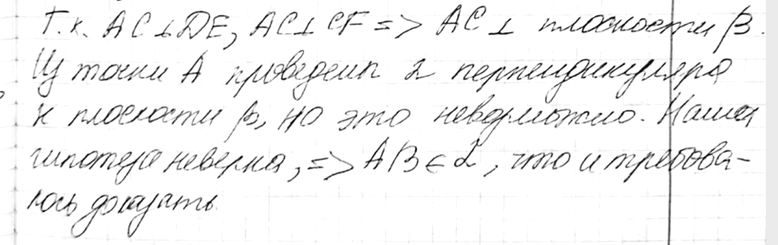 Т.к. AC⊥DE, AC⊥CF => AC⊥ плоскости β.
Из точки A проведены 2 перпендикуляра
к плоскости β, но это невозможно. Наша
гипотеза неверна, => AB∈α, что и требова-
лось доказать